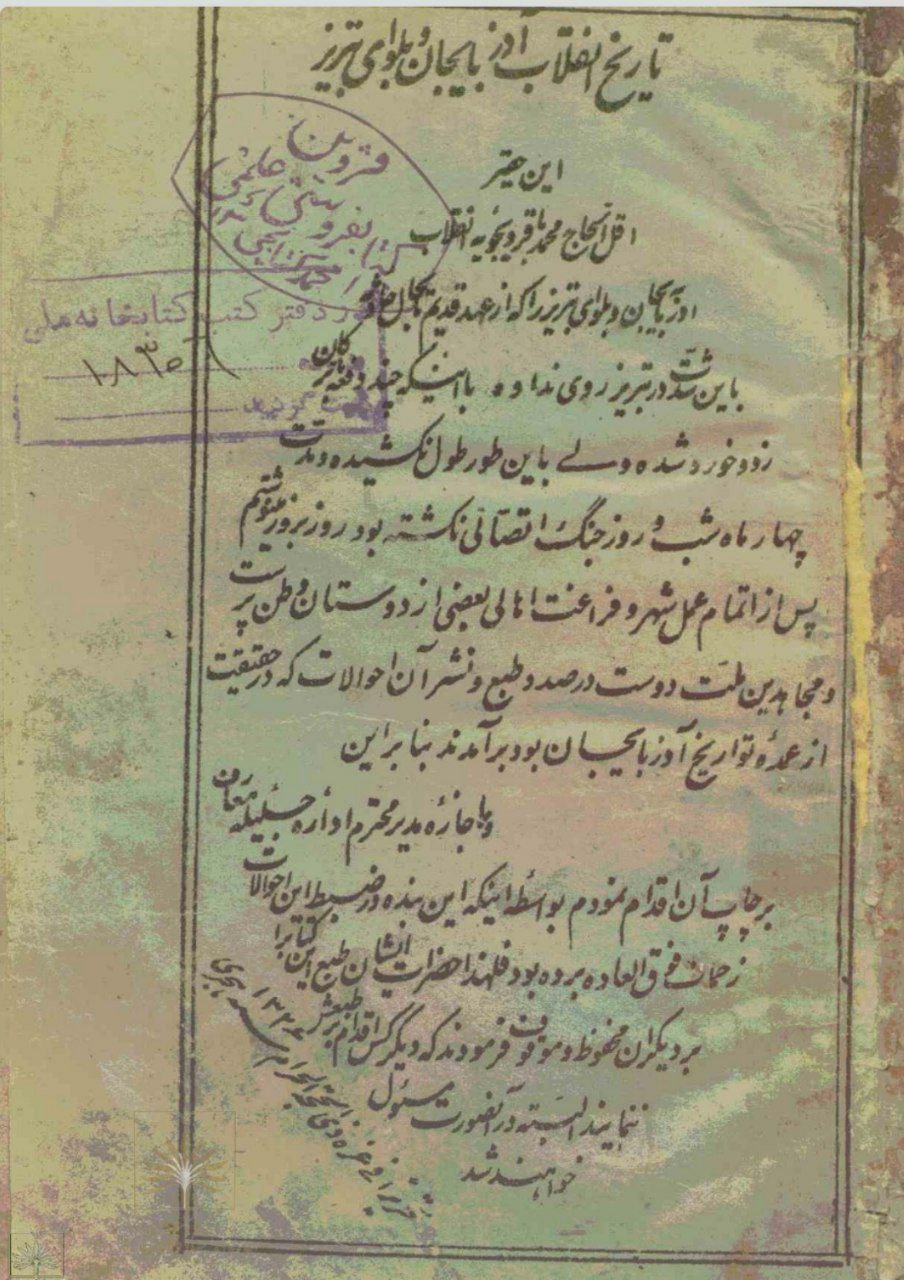 تاریخ انقلاب آذربایجان و بلوای تبریز
این حقیر
اقل الحاج محمد باقر ویجویه انقلاب
اذربایجان و بلوای تبریز را که از عهد قدیم تابحال
باین شدت در تبریز روی نداده با اینکه چند دفعه
زد و خورد شده ولے باین طور طول نکشیده و مدت
چهار ماه شب و روز جنگ اتصالی نکشته بود روز بروز مینوشتم
پس از اتمام عمل شهر و فراغت اهالی بعضی از دوستان وطن پرست
و مجاهدین ملت دوست درصدد طبع و نشر آن احوالات که در حقیقت
از عمده تواریخ آذربایجان بود برآمدند بنا براین
و با جازه مدیر محترم اداره جلیله معارف
بر چاپ آن اقدام نمودم بواسطه اینکه این بنده در ضبط این احوالات
زحمات فوق العاده برده بود فلهذا حضرات ایشان طبع این کتابرا
بر دیکران محفوظ و موقوف فرمودند که دیگر کس اقدام بر طبعش
ننمایند البته در آنصورت مسئول
خواهند شد
تحریرا فی غره ذی الحجة الحرام سنه ۱۳۲۶ هجری
قزوین
کتابفروشی علمی
دفتر کتب کتابخانه ملی
۱۸۳۵۶